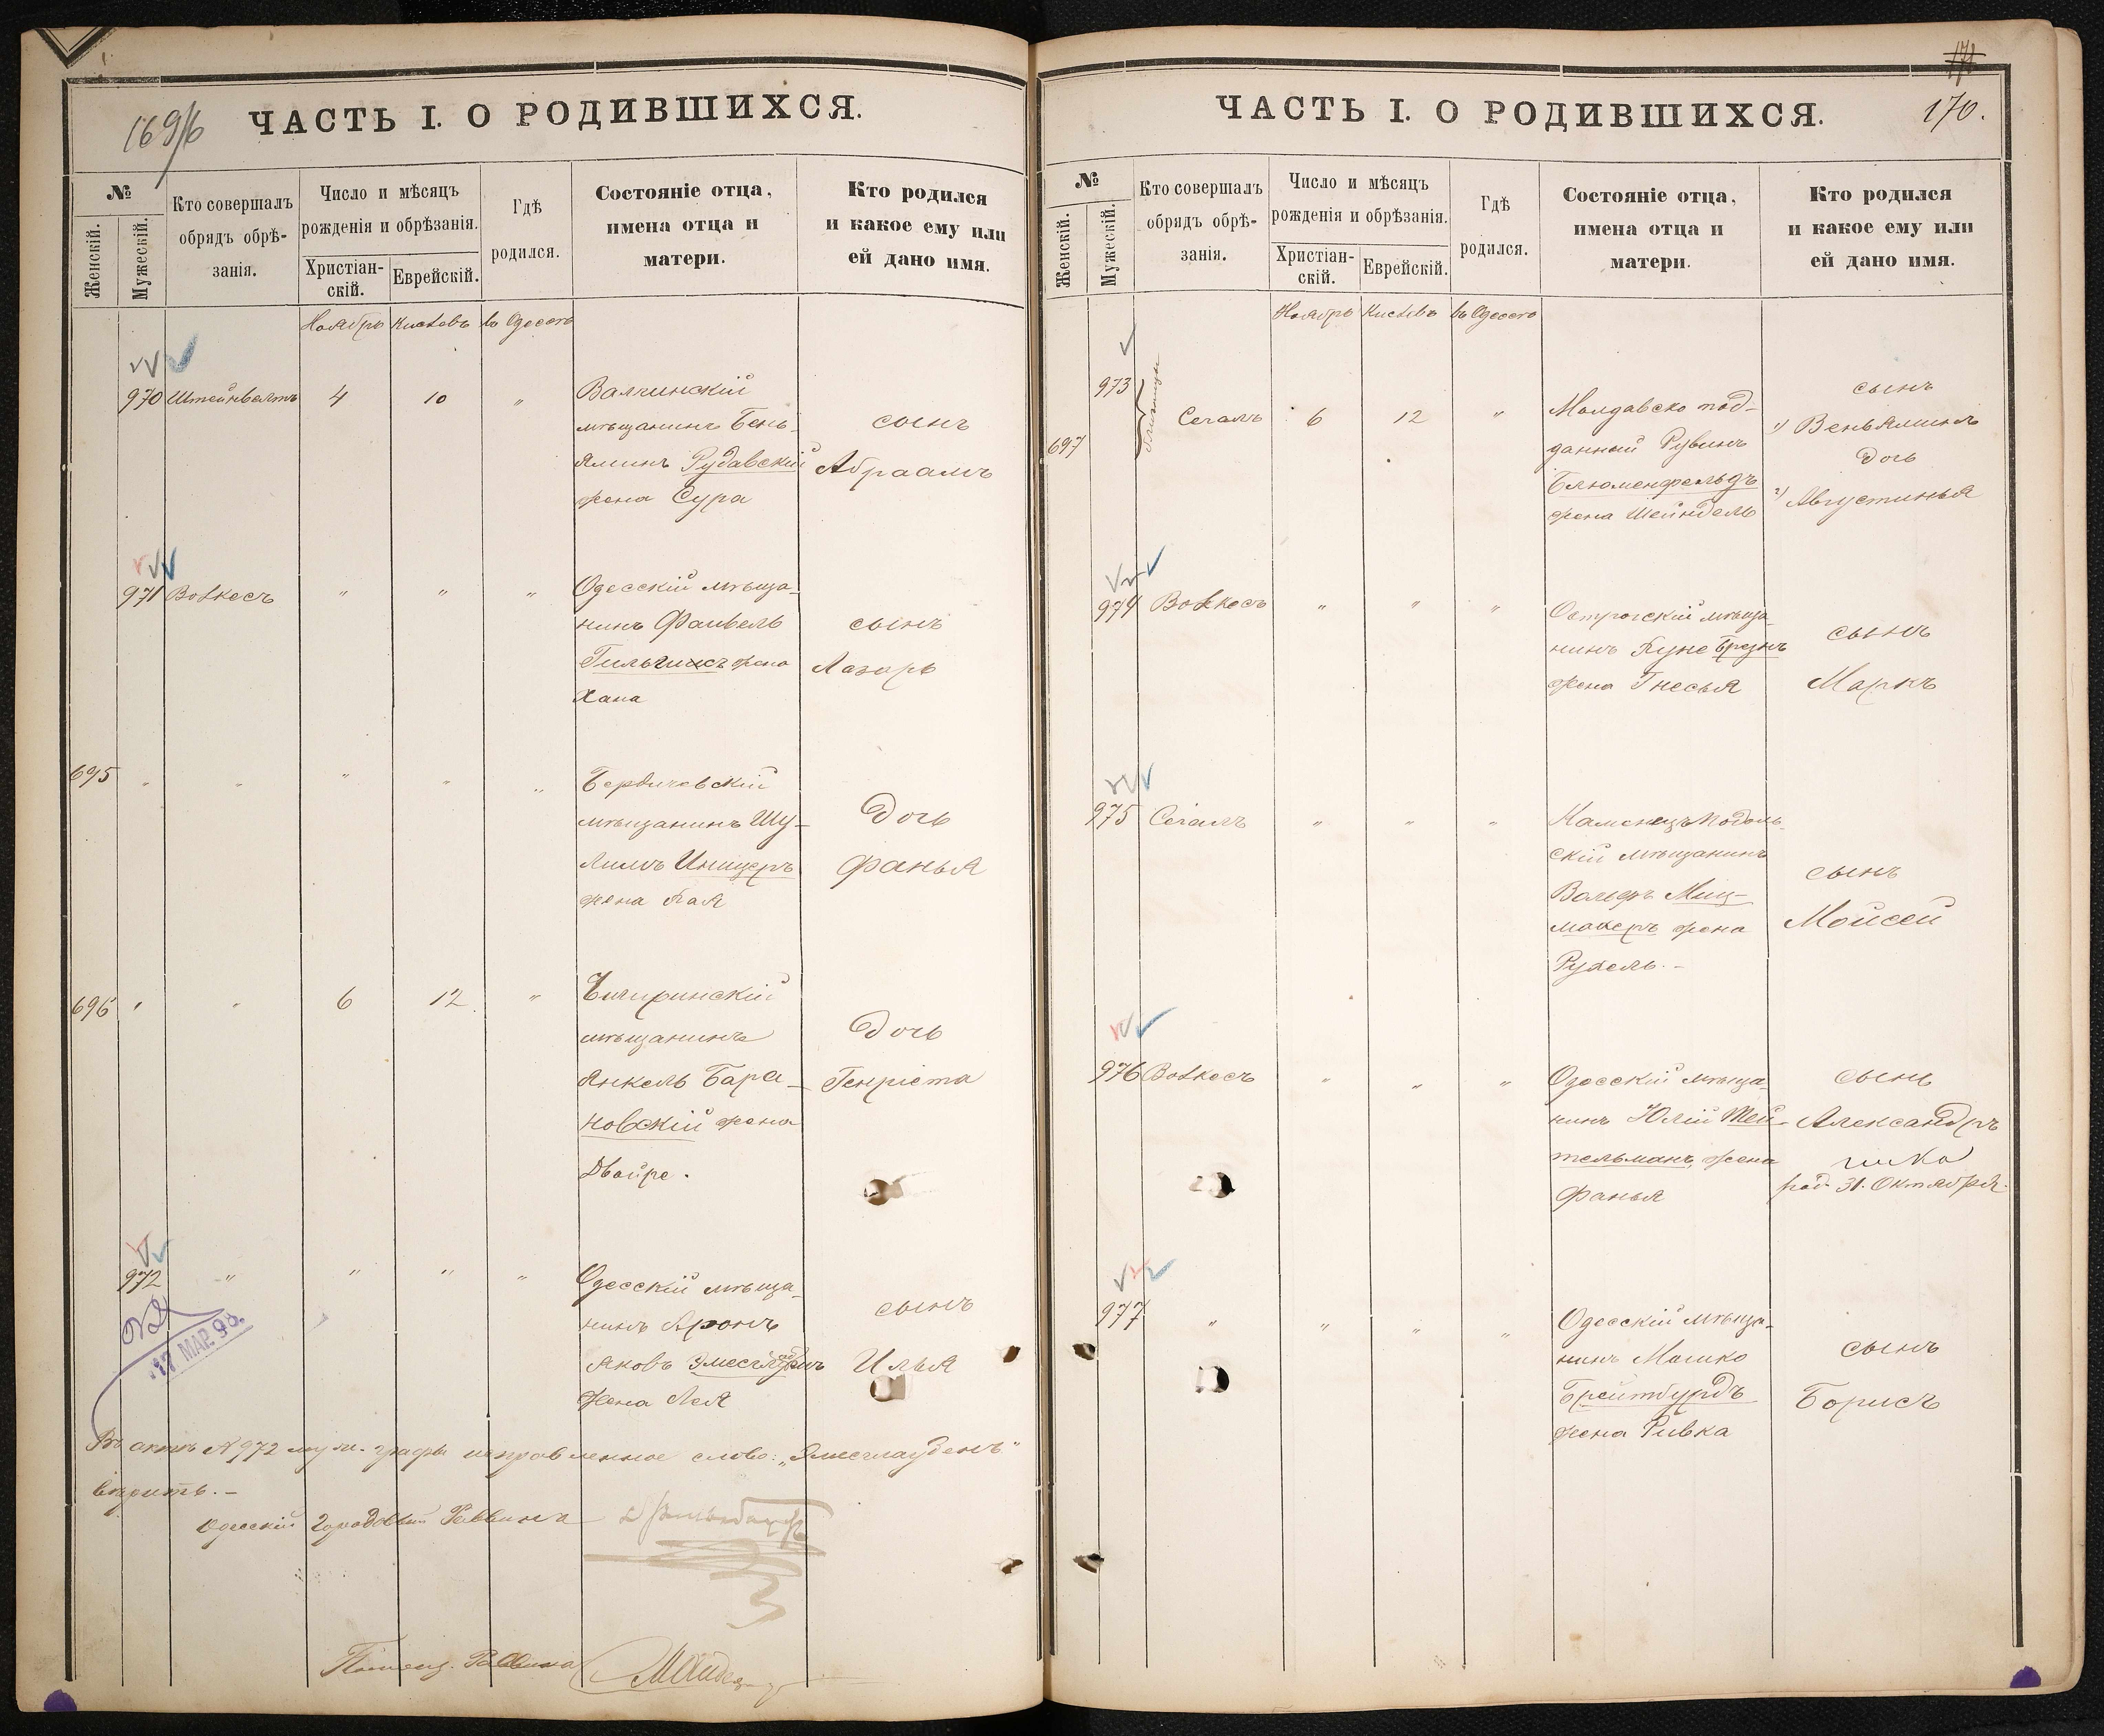 169/б
ЧАСТЬ I. О РОДИВШИХСЯ.
№
Женскій.
Мужескій.
Кто совершалъ
обрядъ обрѣ-
занія.
Число и мѣсяцъ
рожденія и обрѣзанія.
Христіан-
скій.
Еврейскій.
Гдѣ
родился.
Состояніе отца,
имена отца и
матери.
Кто родился
и какое ему или
ей дано имя.
Ноябрь Кислевъ въ Одессѣ
970 Штейнвангъ 4 10 "
Валчинскій
мѣщанинъ Бень-
яминъ Рудавскій
жена Сура
сынъ
Абраамъ
971 Вовкесъ " " "
Одесскій мѣща-
нинъ Файвель
жена
Хана
сынъ
Лазарь
695 " " " " "
Бердичевскій
мѣщанинъ Шу-
лимъ Иницеръ
жена Хая
Дочь
Фанья
696 " " 6 12 "
Чигиринскій
мѣщанинъ
Янкель Бара-
новскій жена
Двойре.
Дочь
Генріета
972 " " " "
Одесскій мѣща-
нинъ Аронъ
Яковъ
жена Лея
сынъ
Илья
17 МАР. 98.
Въ актѣ № 972 муж. графы исправленное слово: „Эмесглаубенъ"
вѣрить.-
Одесскій Городовой Раввинъ
Помощ. Раввина
171
170.
ЧАСТЬ I. О РОДИВШИХСЯ.
№
Женскій.
Мужескій.
Кто совершалъ
обрядъ обрѣ-
занія.
Число и мѣсяцъ
рожденія и обрѣзанія.
Христіан-
скій.
Еврейскій.
Гдѣ
родился.
Состояніе отца,
имена отца и
матери.
Кто родился
и какое ему или
ей дано имя.
Ноябрь Кислевъ въ Одессѣ
973
697
близнецы
Сегалъ 6 12 "
Молдавско под-
данный Рувинъ
Блюменфельдъ
жена Шейндель
сынъ
1) Веньяминъ
дочь
2) Августинья
974 Вовкесъ " " "
Острогскій мѣща-
нинъ Куне Брезнъ
жена Гнесья
сынъ
Маркъ
975 Сегалъ " " "
Каменецъ Подоль-
скій мѣщанинъ
Вольфъ Миц-
махеръ жена
Рухель.-
сынъ
Мойсей
976 Вовкесъ " " "
Одесскій мѣща-
нинъ Юлій Тей-
тельманъ, жена
Фанья
сынъ
Александръ
род. 31. Октября.
977 " " " "
Одесскій мѣща-
нинъ Мошко
Брейтбурдъ
жена Ривка
сынъ
Борисъ